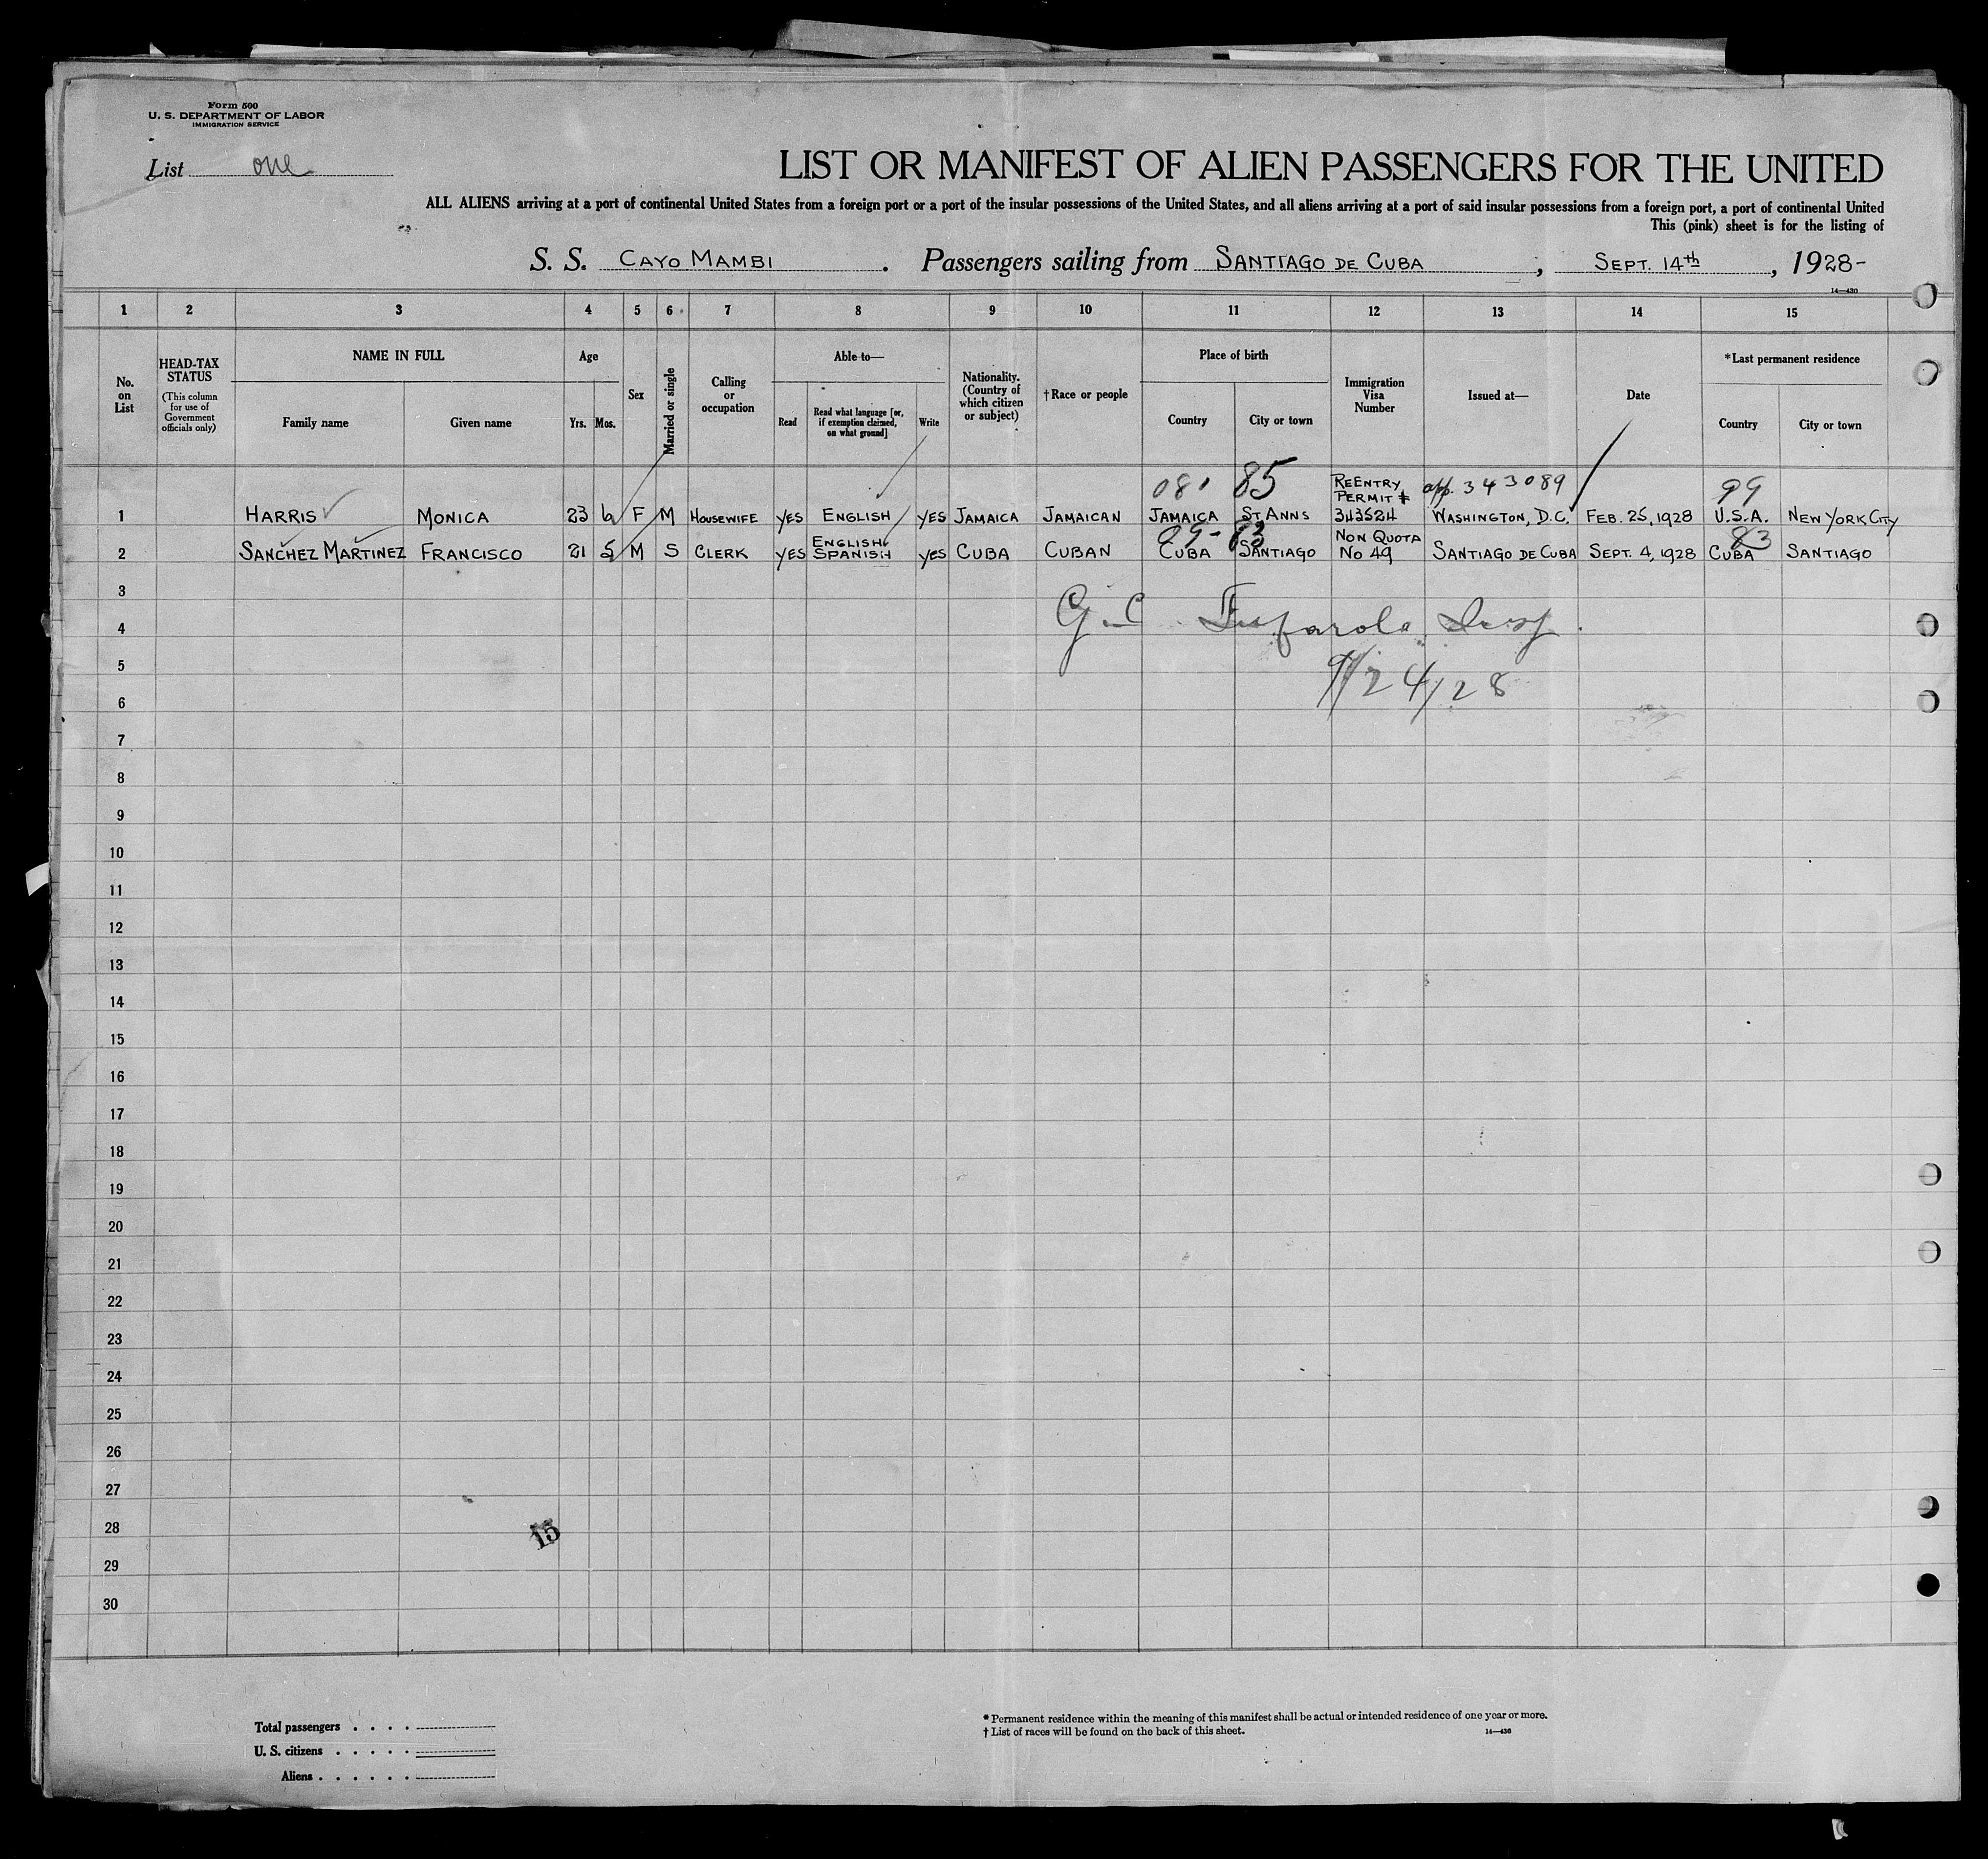 Form 500
U. S. DEPARTMENT OF LABOR
IMMIGRATION SERVICE
List one
LIST OR MANIFEST OF ALIEN PASSENGERS FOR THE UNITED
ALL ALIENS arriving at a port of continental United States from a foreign port or a port of the insular possessions of the United States, and all aliens arriving at a port of said insular possessions from a foreign port, a port of continental United
This (pink) sheet is for the listing of
S. S. CAYO MAMBI . Passengers sailing from SANTIAGO DE CUBA , SEPT. 14th , 1928-
14—430
1 2 3 4 5 6 7 8 9 10 11 12 13 14 15
No. on List
HEAD-TAX STATUS
(This column for use of Government officials only)
NAME IN FULL
Family name Given name
Age
Yrs. Mos.
Sex
Married or single
Calling or occupation
Able to—
Read
Read what language [or, if exemption claimed, on what ground]
Write
Nationality. (Country of which citizen or subject)
† Race or people
Place of birth
Country City or town
Immigration Visa Number
Issued at—
Date
*Last permanent residence
Country City or town
081 85 REENTRY PERMIT # app. 343089 99
1 HARRIS MONICA 23 6 F M HOUSEWIFE YES ENGLISH YES JAMAICA JAMAICAN JAMAICA ST ANNS 343524 WASHINGTON, D.C. FEB. 25, 1928 U.S.A. NEW YORK CITY
83 NON QUOTA 83
2 SANCHEZ MARTINEZ FRANCISCO 21 5 M S CLERK YES ENGLISH SPANISH YES CUBA CUBAN CUBA SANTIAGO No 49 SANTIAGO DE CUBA SEPT. 4, 1928 CUBA SANTIAGO
3
4
5
9/24/28
6
7
8
9
10
11
12
13
14
15
16
17
18
19
20
21
22
23
24
25
26
27
28
15
29
30
Total passengers . . . .
U. S. citizens . . . . .
Aliens . . . . . .
* Permanent residence within the meaning of this manifest shall be actual or intended residence of one year or more.
† List of races will be found on the back of this sheet.
14—430